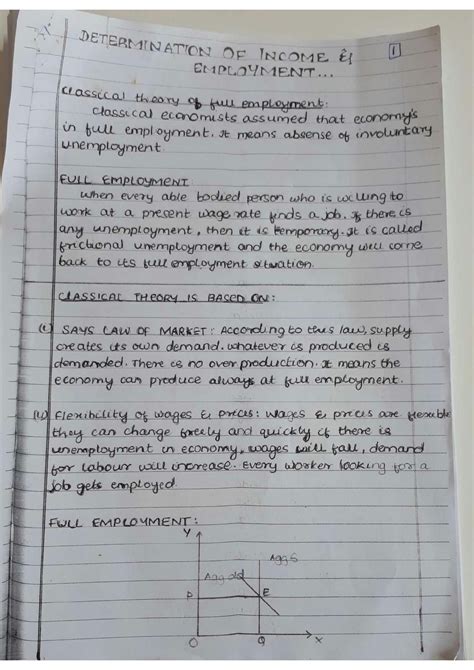 DETERMINATION OF INCOME & 1
EMPLOYMENT...
Classical theory of full employment:
Classical economists assumed that economy's
in full employment. It means absense of involuntary
unemployment
FULL EMPLOYMENT
When every able bodied person who is willing to
work at a present wage rate finds a job. If there is
any unemployment, then it is temporary. It is called
frictional unemployment and the economy will come
back to its full employment situation.
CLASSICAL THEORY IS BASED ON:
(i) SAYS LAW OF MARKET: According to this law, supply
creates its own demand. whatever is produced is
demanded. There is no over production. It means the
economy can produce always at full employment.
(ii) Flexibility of wages & prices: Wages & prices are flexible
they can change freely and quickly if there is
unemployment in economy, wages will fall, demand
for labour will increase. Every worker looking for a
job gets employed.
FULL EMPLOYMENT:
Y
Agg S
Agg dd
P E
O Q X